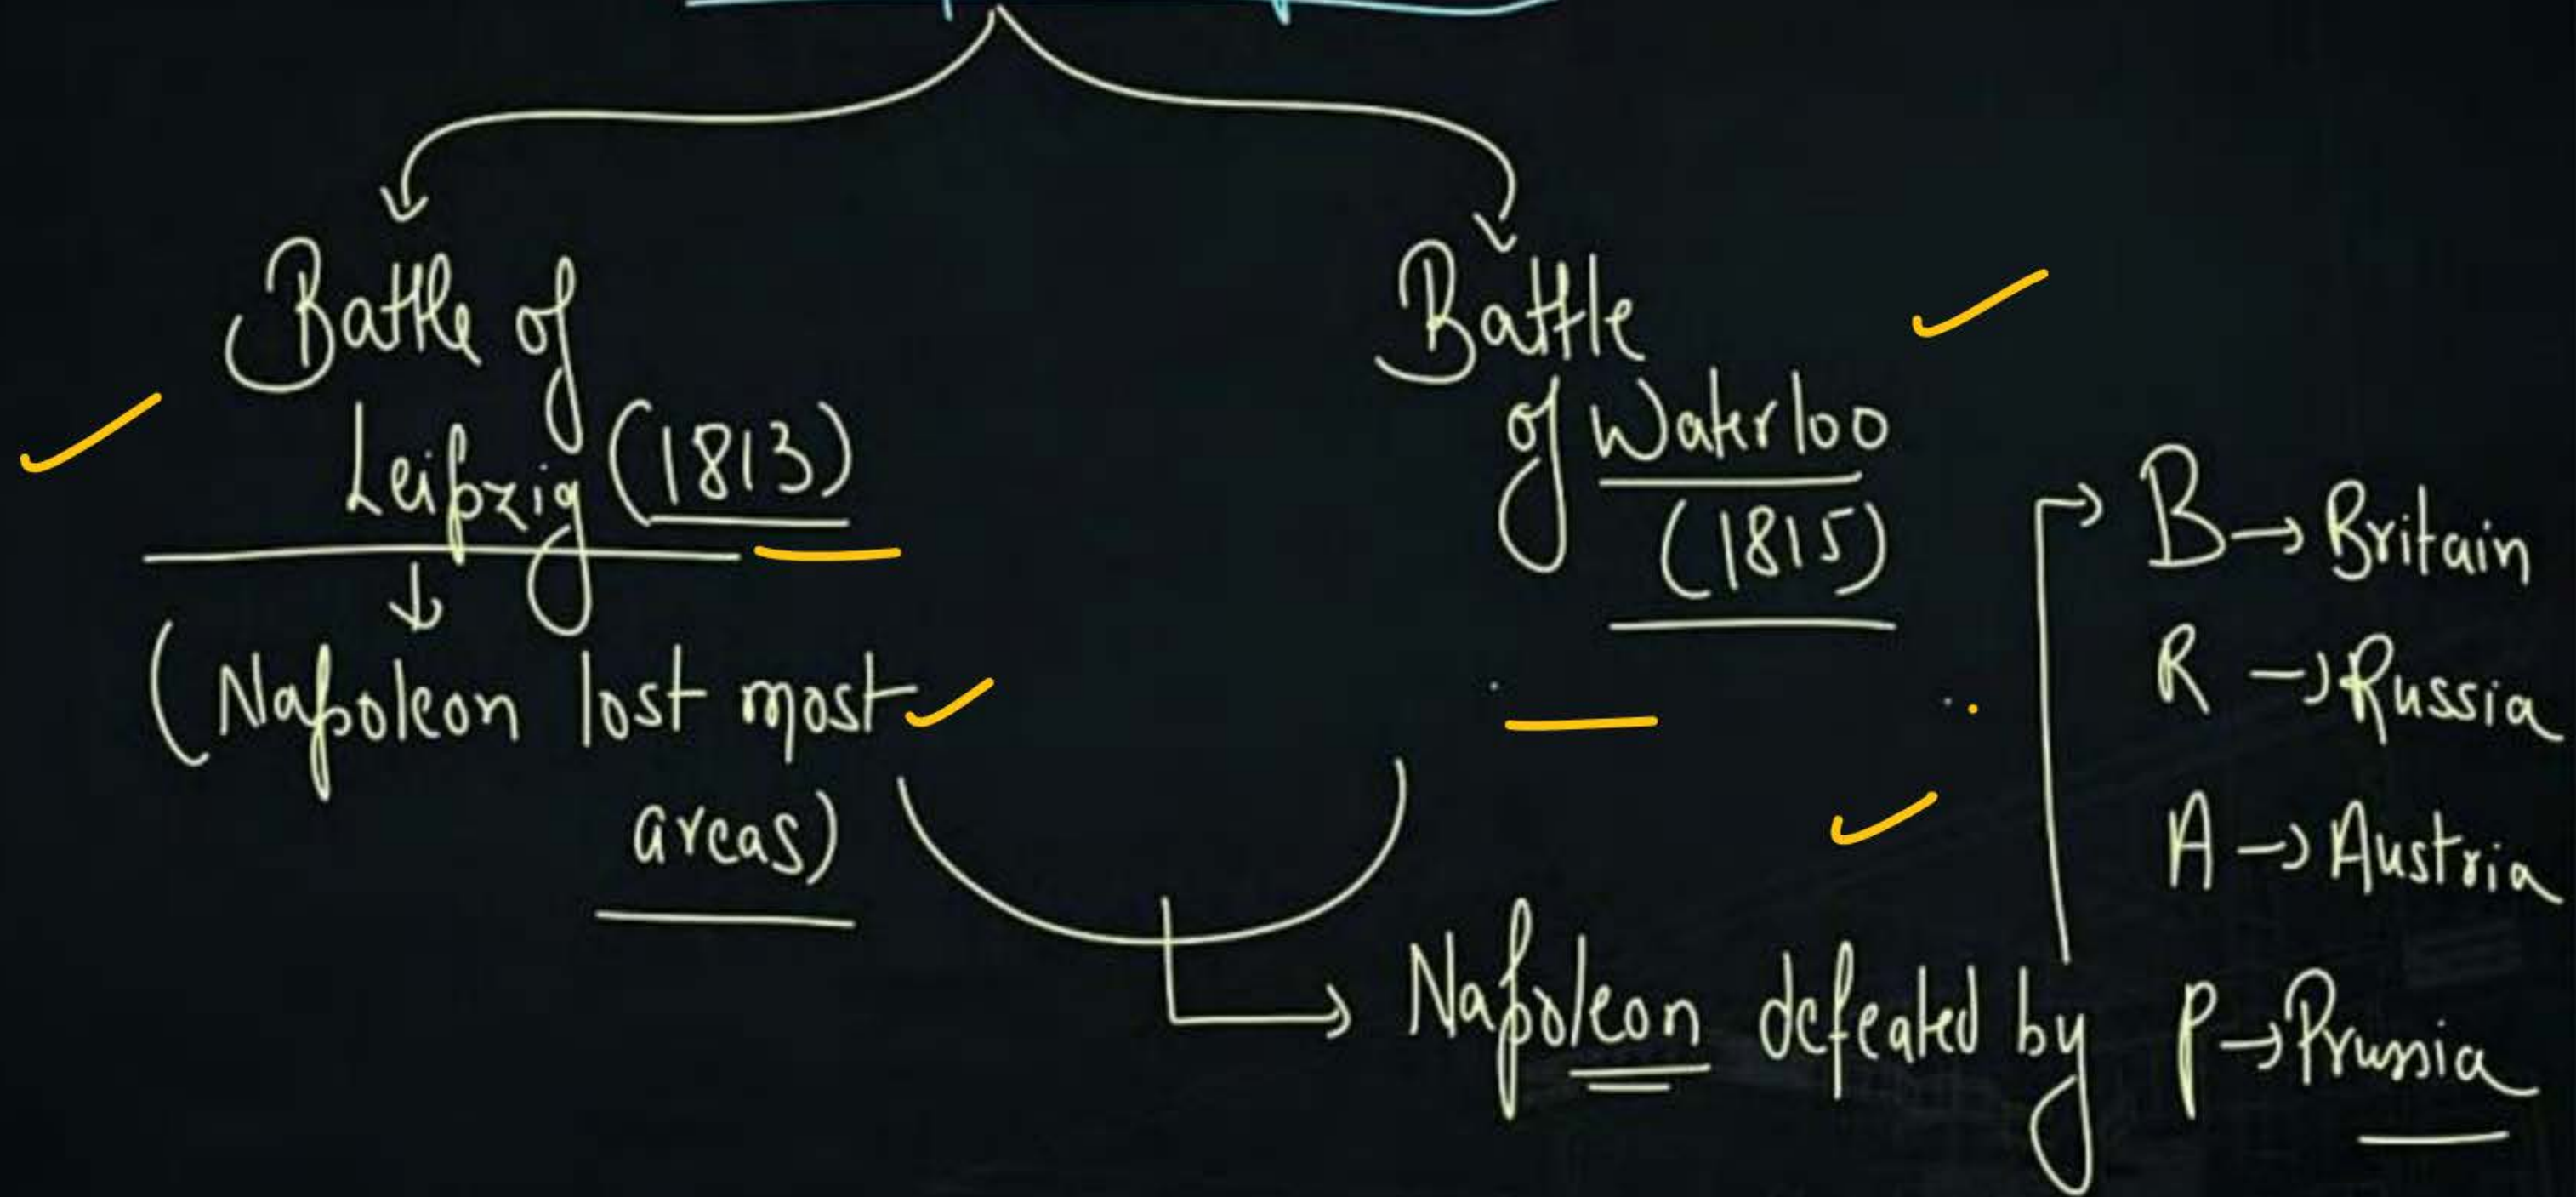 Battle of
Leipzig (1813)
↓
(Napoleon lost most
areas)
Battle
of Waterloo
(1815)
Napoleon defeated by
B → Britain
R → Russia
A → Austria
P → Prussia